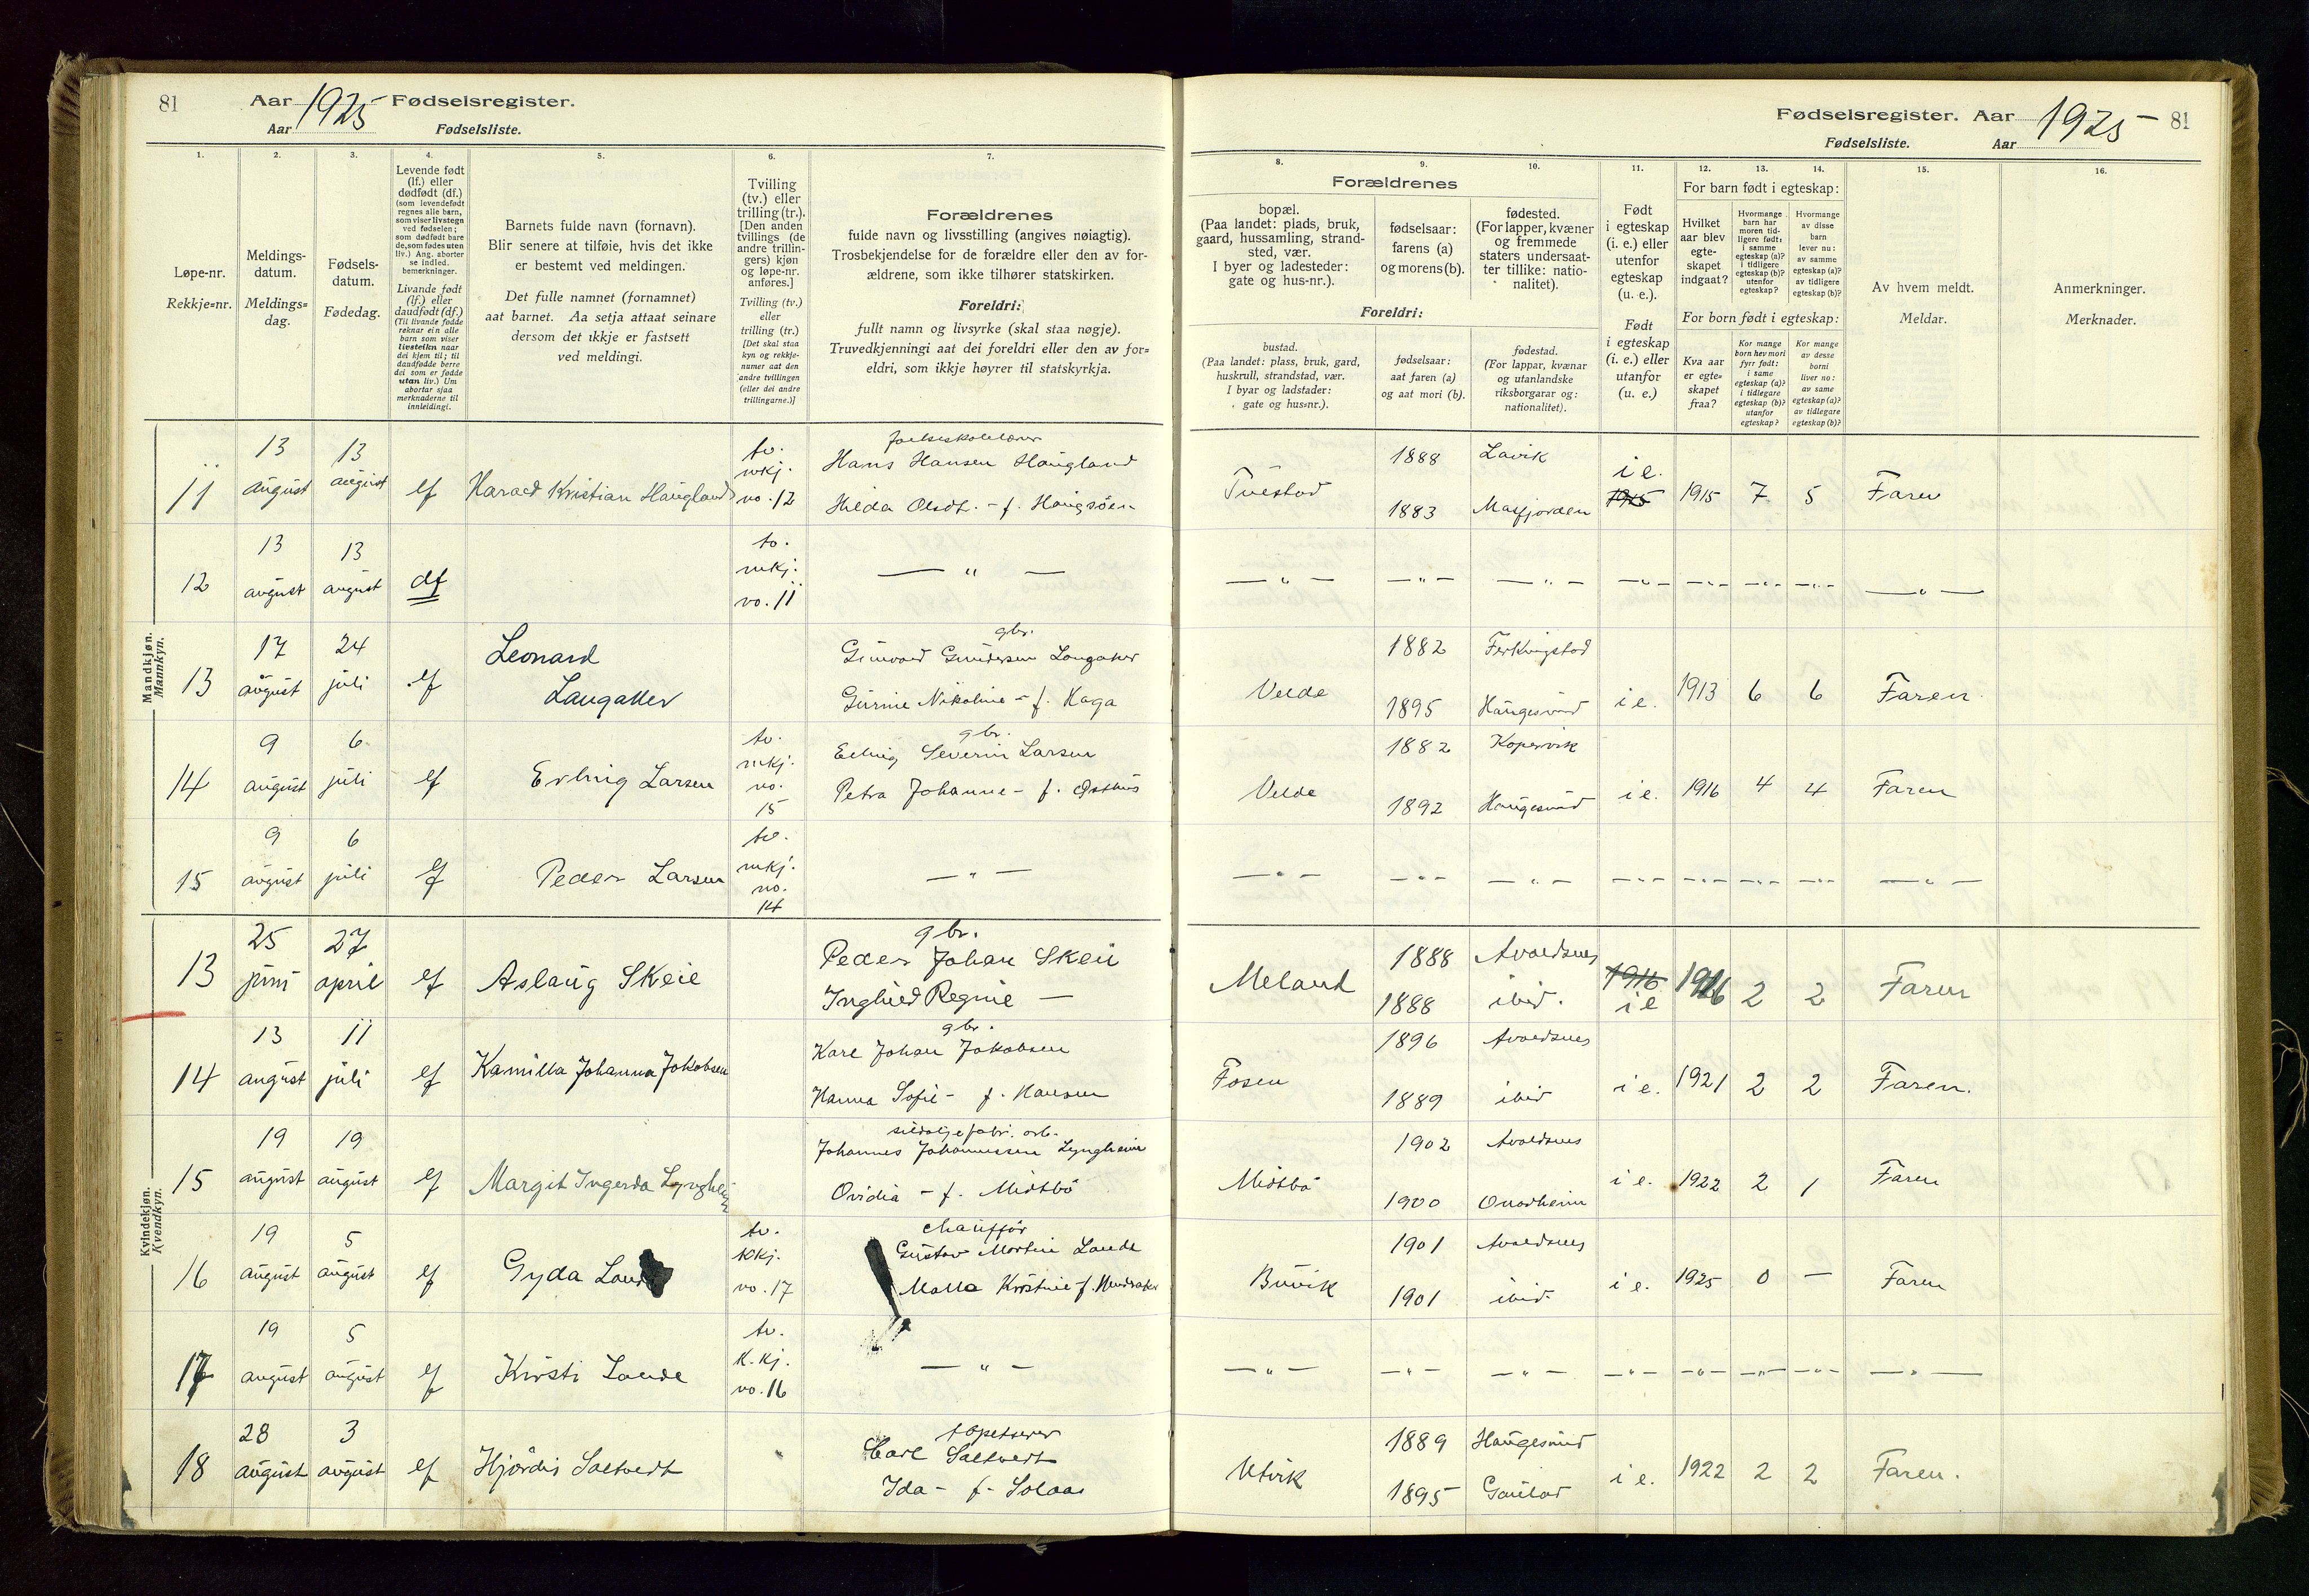 81
Aar 1925 Fødselsregister.
Aar Fødselsliste.
1.
2.
3.
4.
5.
6.
7.
Løpe-nr.
Rekkje=nr.
Meldings-
datum.
Meldings=
dag.
Fødsels-
datum.
Fødedag.
Levende født
(lf.) eller
dødfødt (df.)
(som levendefødt
regnes alle barn,
som viser livstegn
ved fødselen;
som dødfødt bare
de, som fødes uten
liv.) Ang. aborter
se indled.
bemerkninger.
Livande født
(lf.) eller
daudfødt (df.)
(Til livande fødde
reknar ein alle
barn som viser
livsteikn naar
dei kjem til; til
daudfødde berre
dei som er fødde
utan liv.) Um
abortar sjaa
merknaderne til
innleidingi.
Barnets fulde navn (fornavn).
Blir senere at tilføie, hvis det ikke
er bestemt ved meldingen.
Det fulle namnet (fornamnet)
aat barnet. Aa setja attaat seinare
dersom det ikkje er fastsett
ved meldingi.
Tvilling
(tv.) eller
trilling (tr.).
[Den anden
tvillings (de
andre trillin-
gers) kjøn
og løpe-nr.
anføres.]
Tvilling (tv.)
eller
trilling (tr.)
[Det skal staa
kyn og rekkje-
numer aat den
andre tvillingen
(eller dei andre
trillingarne.)]
Forældrenes
fulde navn og livsstilling (angives nøiagtig).
Trosbekjendelse for de forældre eller den av for-
ældrene, som ikke tilhører statskirken.
Foreldri:
fullt namn og livsyrke (skal staa nøgje).
Truvedkjenningi aat dei foreldri eller den av for=
eldri, som ikkje høyrer til statskyrkja.
Mandkjøn.
Mannkyn.
11
13
august
13
august
lf
Harald Kristian Haugland
tv.
mkj.
no. 12
Hans Hansen Haugland
Hilda Olsdt. - f. Haugsöen
12
13
august
13
august
df
tv.
mkj.
no. 11
— " —
13
17
august
24
juli
lf
Leonard
Langaker
gbr.
Gunvald Gundersen Langaker
Gurine Nikoline - f. Haga
14
9
august
6
juli
lf
Erling Larsen
tv.
mkj.
no.
15
gbr.
Elling Severin Larsen
Petra Johanne - f. Østhus
15
9
august
6
juli
lf
Peder Larsen
tv.
mkj.
no.
14
— " —
Kvindekjøn.
Kvendkyn.
13
25
juni
27
april
lf
Aslaug Skeie
gbr.
Peder Johan Skeie
Inghild Regine —
14
13
august
11
juli
lf
Kamilla Johanna Jakobsen
gbr.
Karl Johan Jakobsen
Hanna Sofie - f. Hansen
15
19
august
19
august
lf
Margit Ingerda Lyngheim
sildoljefabr. arb.
Johannes Johannessen Lyngheim
Ovidia - f. Midtbö
16
19
august
5
august
lf
Gyda Lande
tv.
kkj.
no. 17
chauffør
Gustav Martin Lande
Malla Kristine f.
17
19
august
5
august
lf
Kirsti Lande
tv.
k.kj.
no. 16
— " —
18
28
august
3
august
lf
Hjördis Saltvedt
tapetserer
Carl Saltvedt
Ida - f. Solaas
Fødselsregister. Aar 1925 81
Fødselsliste. Aar
8.
9.
10.
11.
12.
13.
14.
15.
16.
Forældrenes
bopæl.
(Paa landet: plads, bruk,
gaard, hussamling, strand-
sted, vær.
I byer og ladesteder:
gate og hus-nr.).
fødselsaar:
farens (a)
og morens (b).
fødested.
(For lapper, kvæner
og fremmede
staters undersaat-
ter tillike: natio-
nalitet).
Foreldri:
bustad.
(Paa landet: plass, bruk, gard,
huskrull, strandstad, vær.
I byar og ladstader:
gate og hus=nr.).
fødselsaar:
aat faren (a)
og aat mori (b).
fødestad.
(For lappar, kvænar
og utanlandske
riksborgarar og:
nationalitet).
Født
i egteskap
(i. e.) eller
utenfor
egteskap
(u. e.).
Født
i egteskap
(i. e.) eller
utanfor
(u. e.)
For barn født i egteskap:
Hvilket
aar blev
egte-
skapet
indgaat?
Hvormange
barn har
moren tid-
ligere født:
i samme
egteskap (a)?
i tidligere
egteskap (b)?
utenfor
egteskap?
Hvormange
av disse
barn
lever nu:
av samme
egteskap (a)?
av tidligere
egteskap (b)?
For born født i egteskap:
Kva aar
er egte=
skapet
fraa?
Kor mange
born hev mori
fyrr født:
i same
egteskap (a)?
i tidlegare
egteskap (b)?
utanfor
egteskap?
Kor mange
av desse
borni
liver no:
av same
egteskap (a)?
av tidlegare
egteskap (b)?
Av hvem meldt.
Meldar.
Anmerkninger.
Merknader.
Tuestad
1888
1883
Lavik
Masfjorden
i e.
1915
1915
7
5
Faren
— " —
— " —
— " —
— " —
— " —
— " —
— " —
— " —
Velde
1882
1895
Ferkingstad
Haugesund
i e.
1913
6
6
Faren
Velde
1882
1892
Kopervik
Haugesund
i e.
1916
4
4
Faren
— " —
— " —
— " —
— " —
— " —
— " —
— " —
— " —
Meland
1888
1888
Avaldsnes
ibid.
1916
i e
1916
2
2
Faren
Fosen
1896
1889
Avaldsnes
ibid
i e.
1921
2
2
Faren.
Midtbö
1902
1900
Avaldsnes
i e.
1922
2
1
Faren
Buvik
1901
1901
Avaldsnes
ibid.
i e.
1925
0
—
Faren
— " —
— " —
— " —
— " —
— " —
— " —
— " —
— " —
Utvik
1889
1895
Haugesund
i e.
1922
2
2
Faren.